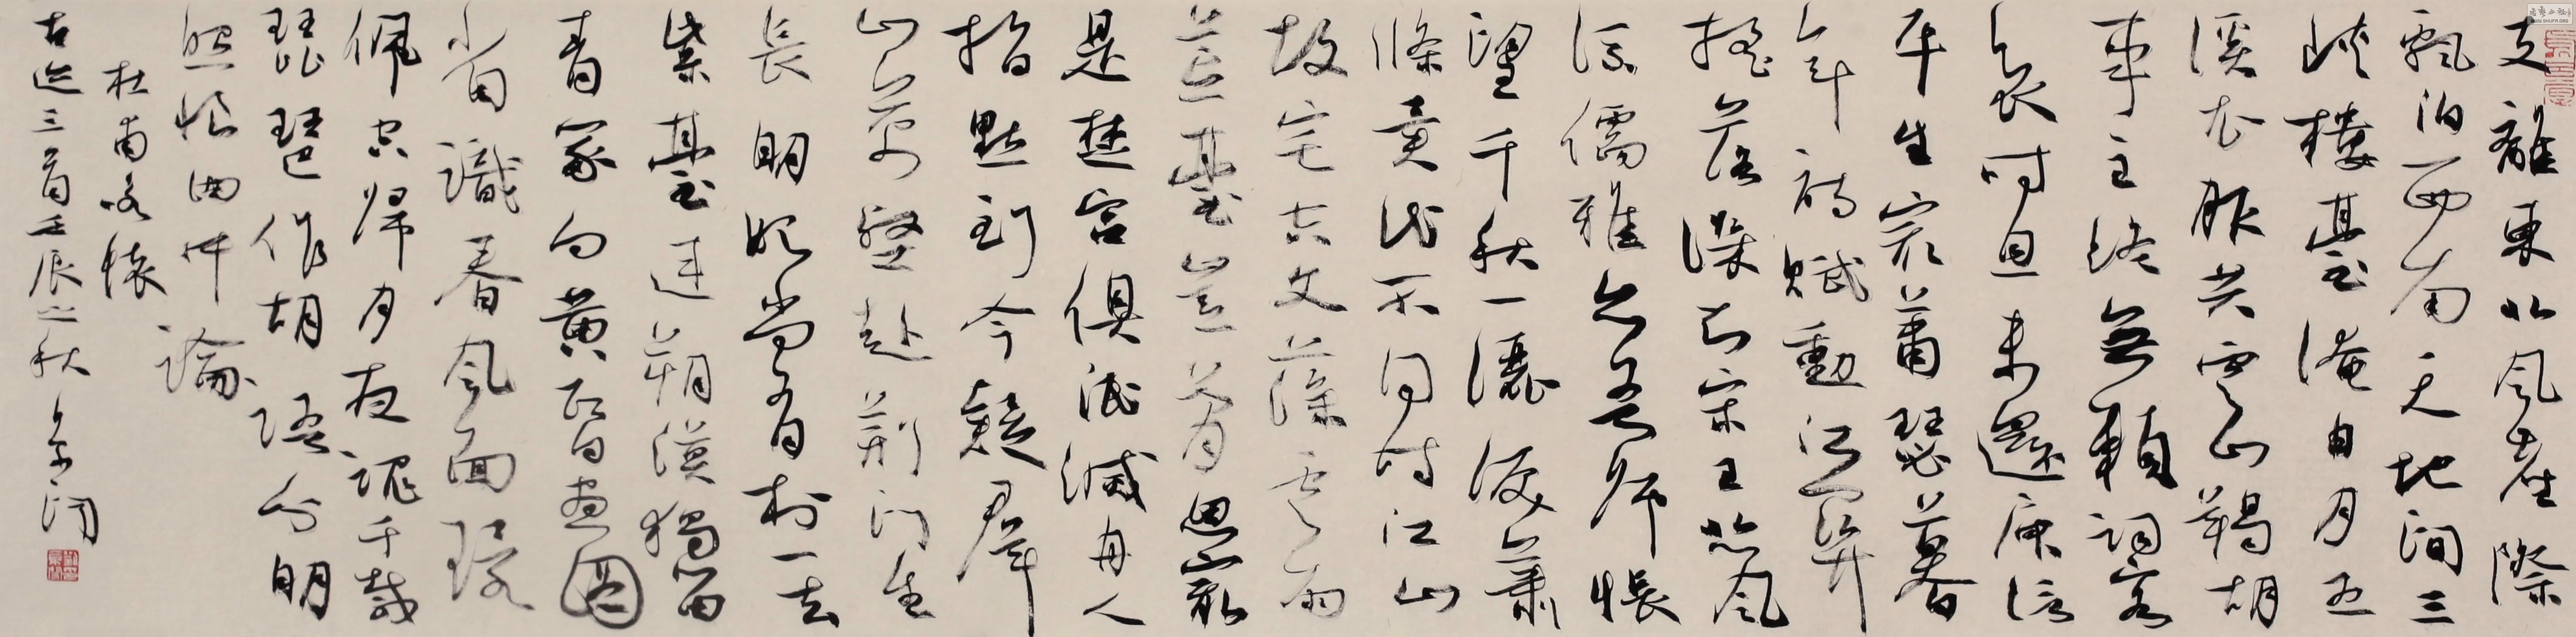 支離東北風塵際
飄泊西南天地間三
峽樓臺淹日月五
溪衣服共雲山羯胡
事主終無賴詞客
哀時且未還庾信
平生最蕭瑟暮
年詩賦動江關
搖落深知宋玉悲風
流儒雅亦吾師悵
望千秋一灑淚蕭
條異代不同時江山
故宅空文藻雲雨
荒臺豈夢思最
是楚宮俱泯滅舟人
指點到今疑羣
山萬壑赴荊門生
長明妃尚有村一去
紫臺連朔漠獨留
青冢向黃昏畫圖
省識春風面環
佩空歸月夜魂千載
琵琶作胡語分明
怨恨曲中論
杜甫咏懷
古迹三首壬辰之秋